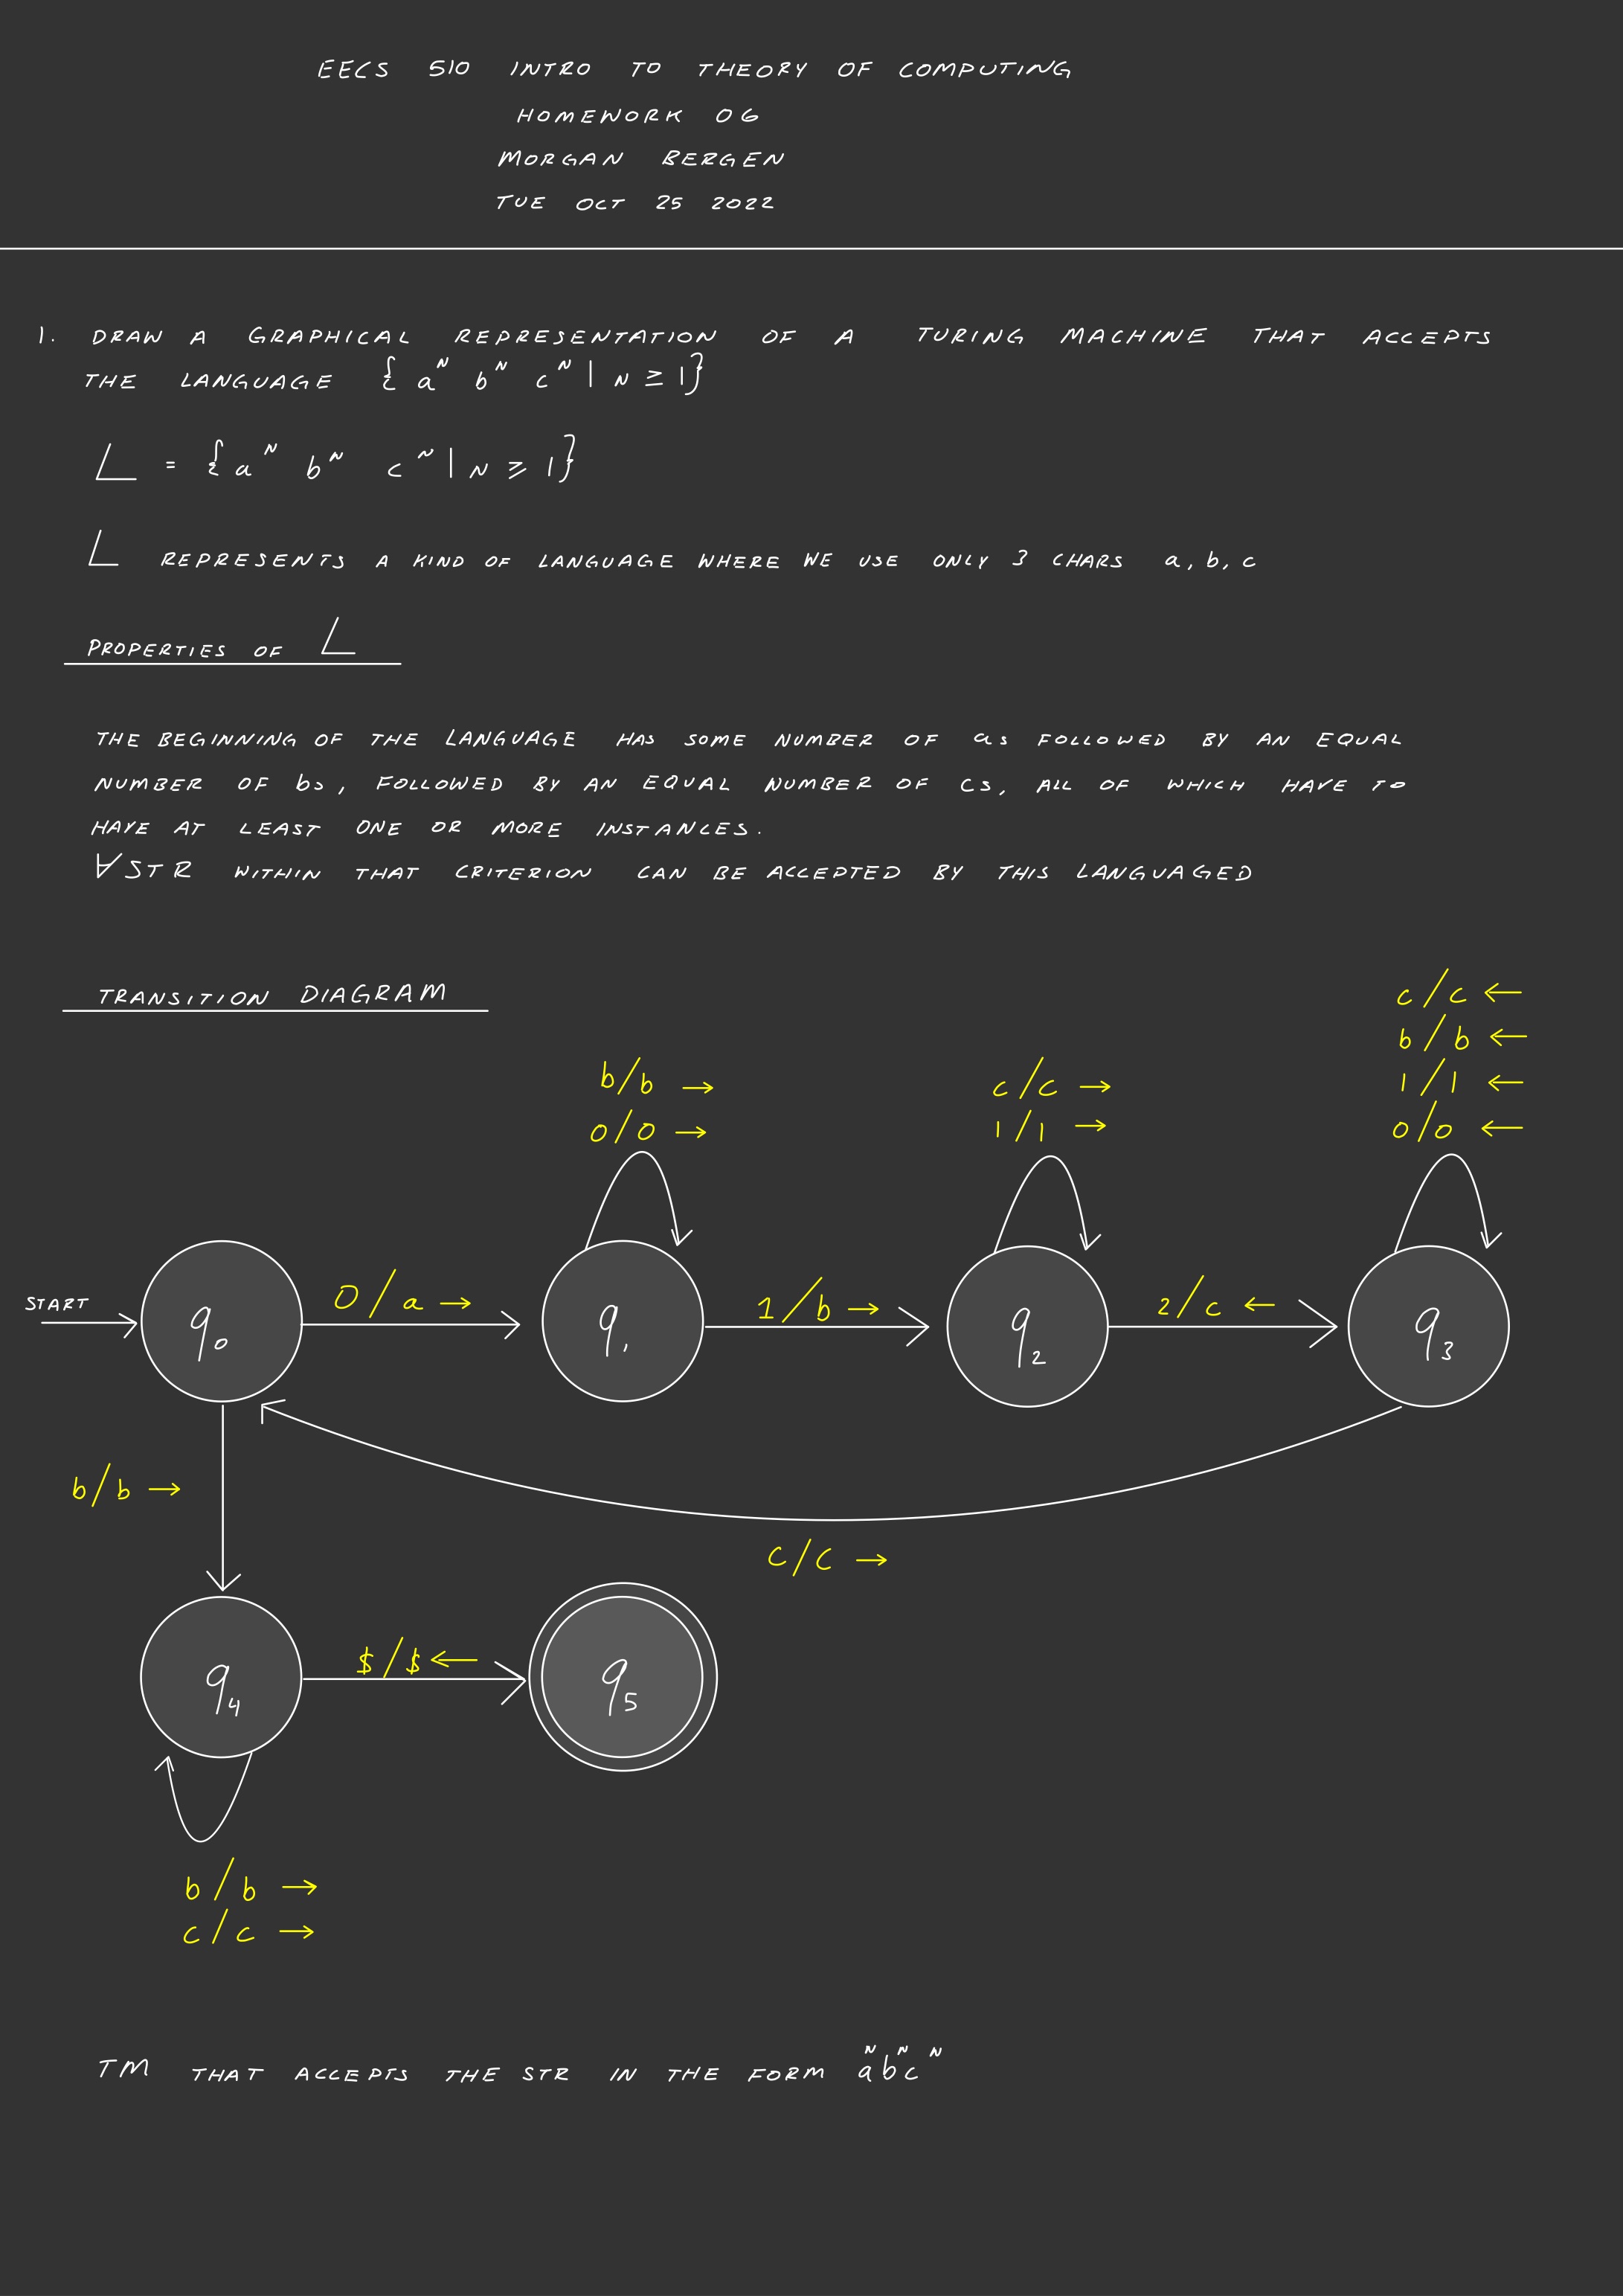 EECS 510 INTRO TO THEORY OF COMPUTING
HOMEWORK 06
MORGAN BERGEN
TUE OCT 25 2022
1. DRAW A GRAPHICAL REPRESENTATION OF A TURING MACHINE THAT ACCEPTS
THE LANGUAGE { aᴺ bᴺ cᴺ | N ≥ 1}
L = { aᴺ bᴺ cᴺ | N ≥ 1}
L REPRESENTS A KIND OF LANGUAGE WHERE WE USE ONLY 3 CHARS a, b, c
PROPERTIES OF L
THE BEGINNING OF THE LANGUAGE HAS SOME NUMBER OF as FOLLOWED BY AN EQUAL
NUMBER OF bs, FOLLOWED BY AN EQUAL NUMBER OF cs, ALL OF WHICH HAVE TO
HAVE AT LEAST ONE OR MORE INSTANCES.
∀STR WITHIN THAT CRITERION CAN BE ACCEPTED BY THIS LANGUAGED
TRANSITION DIAGRAM
c/c ←
b/b ←
1/1 ←
0/0 ←
b/b →
0/0 →
c/c →
1/1 →
START
q₀
0/a →
q₁
1/b →
q₂
2/c ←
q₃
b/b →
C/C →
q₄
$/$ ←
q₅
b/b →
c/c →
TM THAT ACCEPTS THE STR IN THE FORM aᴺbᴺcᴺ